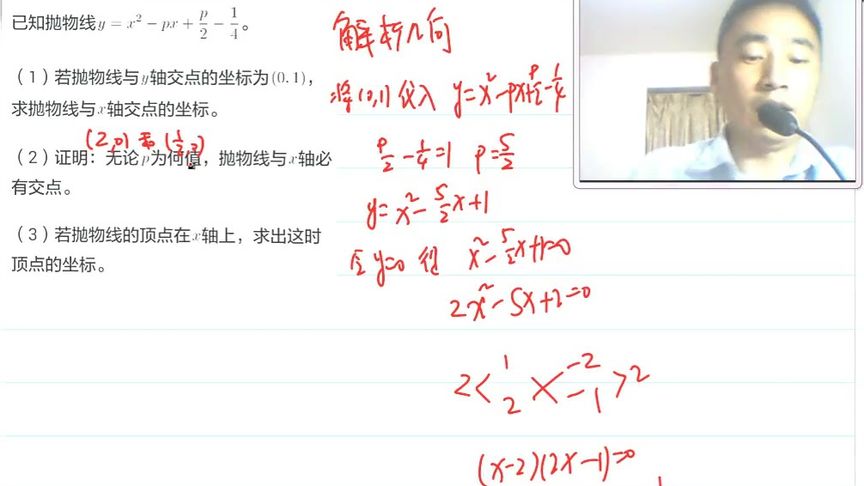 已知抛物线y = x² − px + p/2 − 1/4。
（1）若抛物线与y轴交点的坐标为(0, 1)，
求抛物线与x轴交点的坐标。
(2,0) 和 (1/2,0)
（2）证明：无论p为何值，抛物线与x轴必
有交点。
（3）若抛物线的顶点在x轴上，求出这时
顶点的坐标。
解析几何
将(0,1)代入 y=x²-px+p/2-1/4
p/2-1/4=1 p=5/2
y=x²-5/2x+1
令y=0 得 x²-5/2x+1=0
2x²-5x+2=0
1 -2
2< × >2
2 -1
(x-2)(2x-1)=0